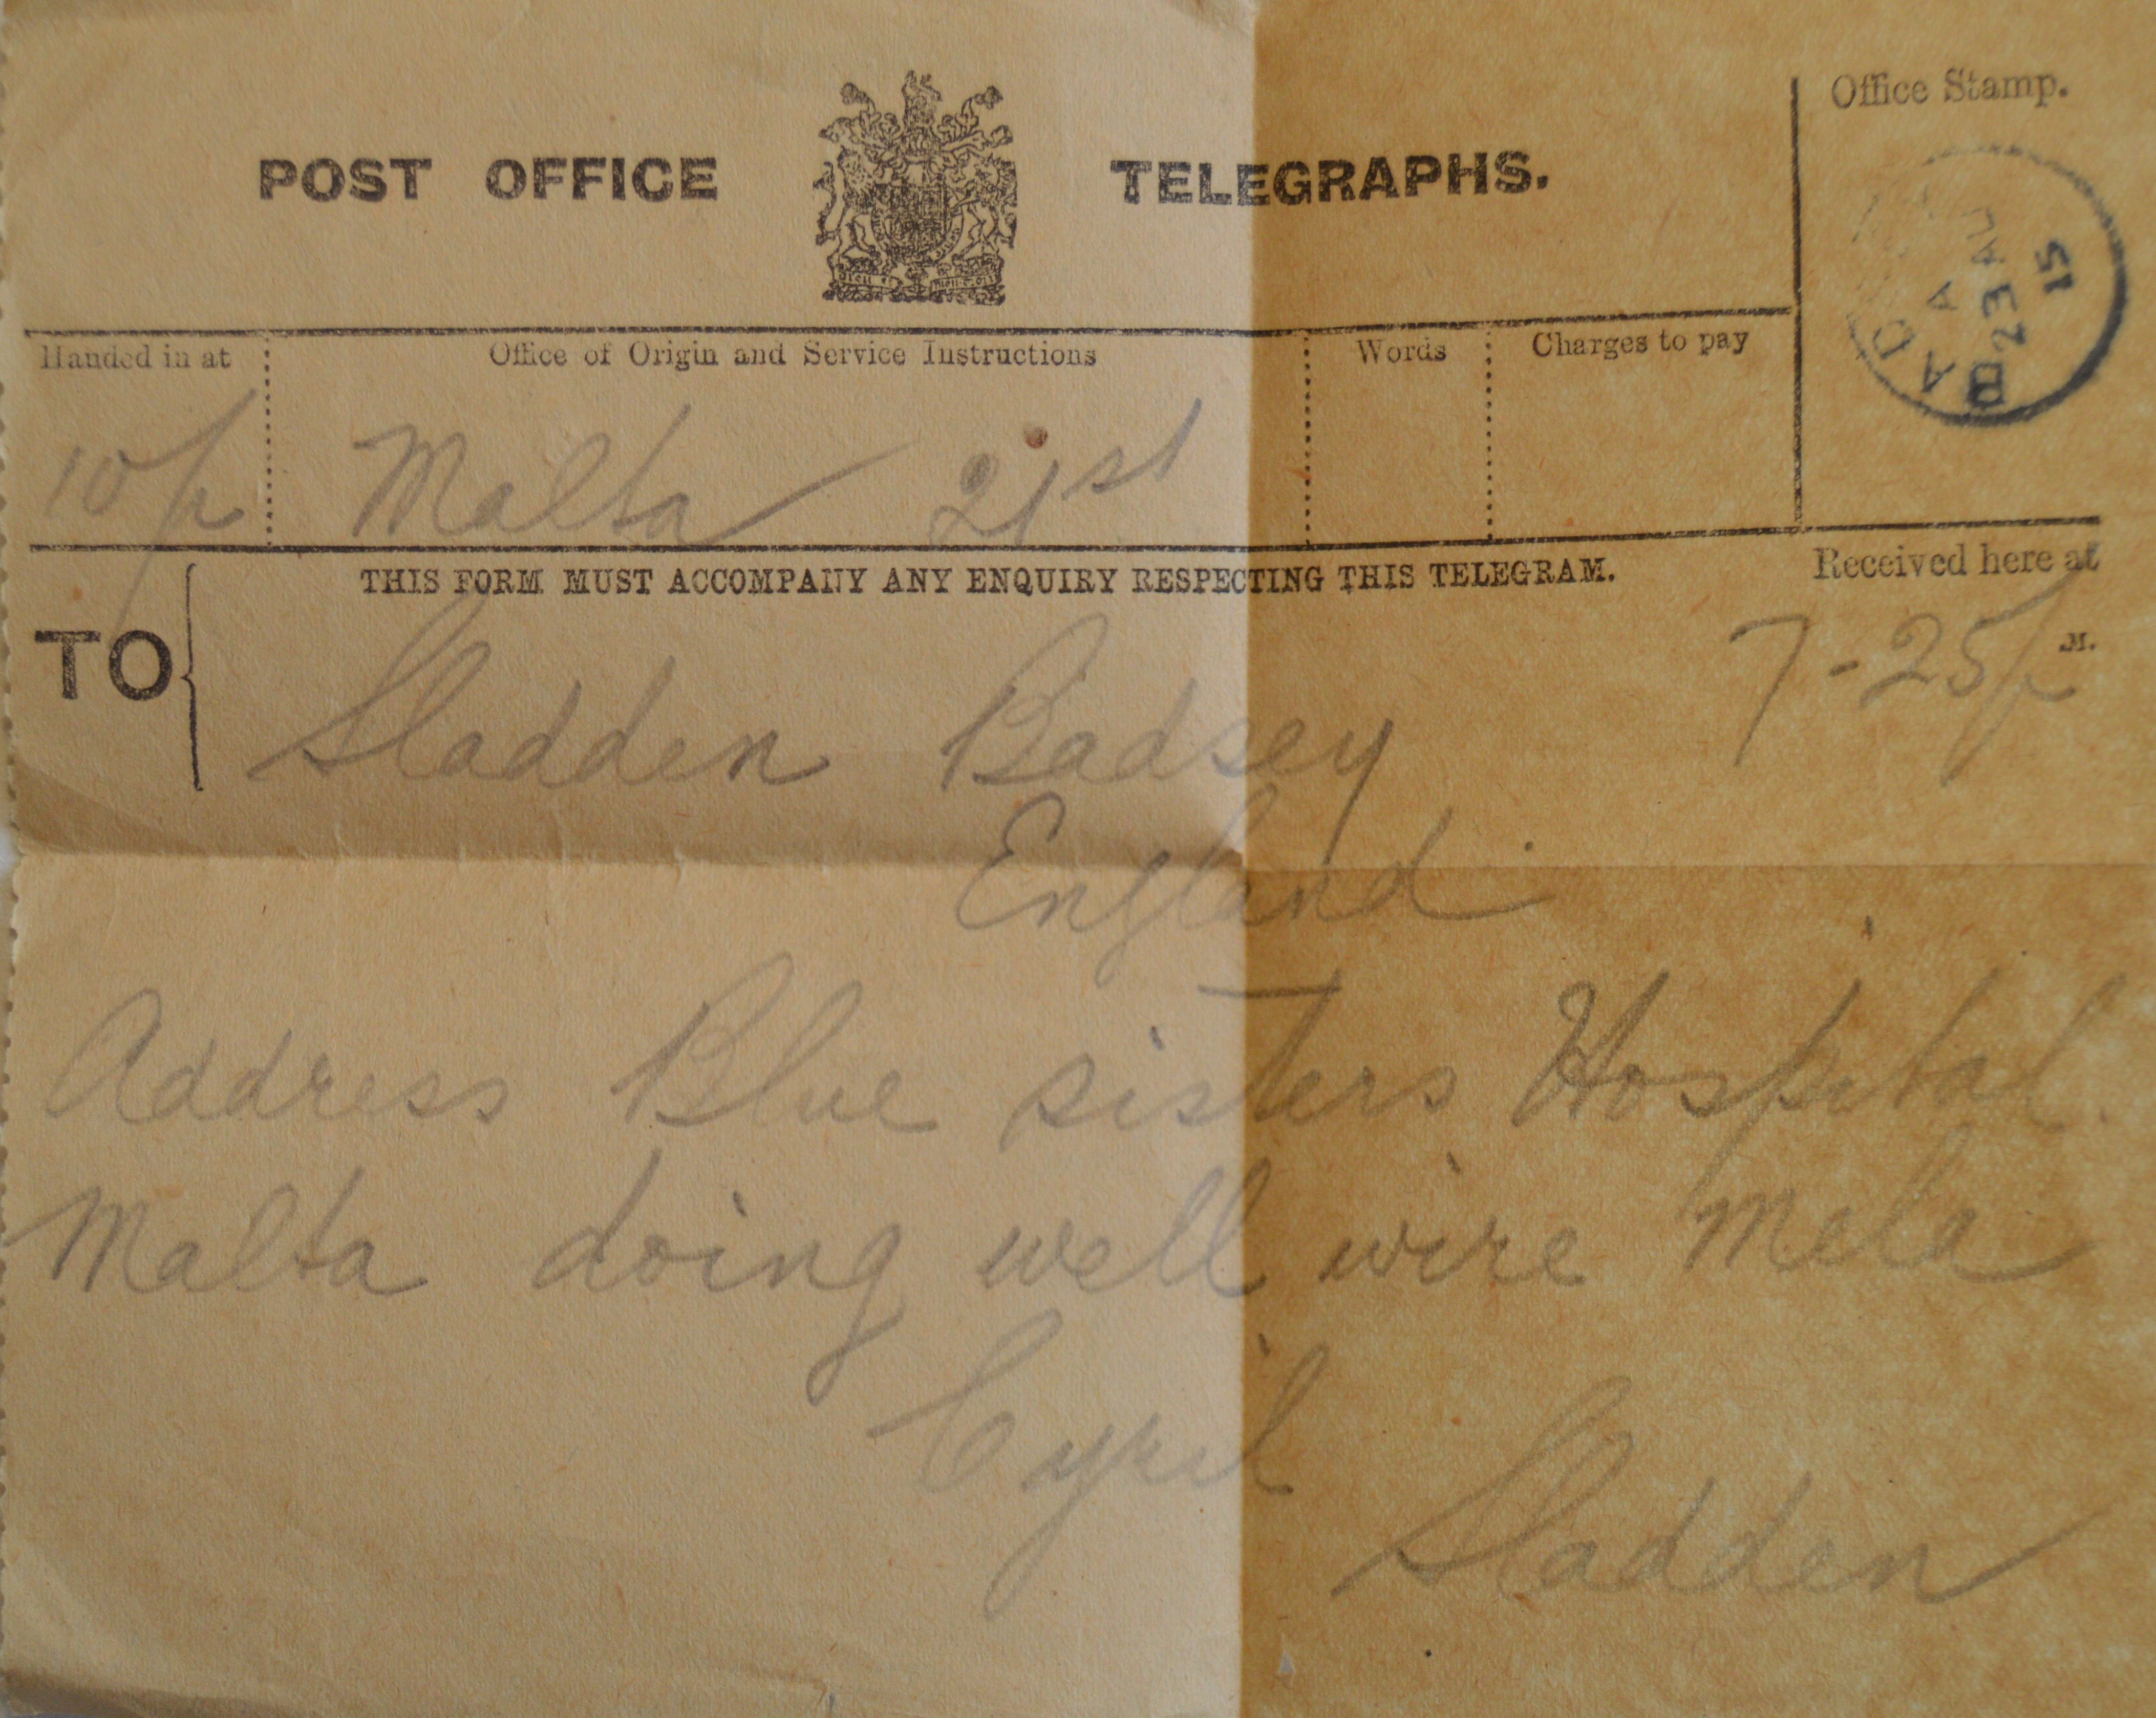 Office Stamp.
POST OFFICE TELEGRAPHS.
23 AU
15
Handed in at
Office of Origin and Service Instructions
Words
Charges to pay
10/p
Malta 21st
THIS FORM MUST ACCOMPANY ANY ENQUIRY RESPECTING THIS TELEGRAM.
Received here at
7-25/p M.
TO
Sladden Badsey
England
Address Blue sisters Hospital
Malta doing well wire Mela
Cyril
Sladden